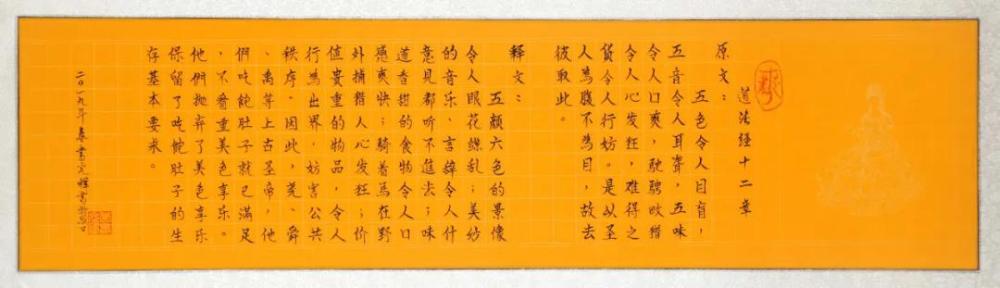 道法经十二章
原文：
五色令人目盲，
五音令人耳聋，五味
令人口爽，驰骋畋猎
令人心发狂，难得之
货令人行妨。是以圣
人為腹不為目，故去
彼取此。
释文：
五颜六色的景像
令人眼花缭乱；美妙
的音乐、言辞令人什
意见都听不进去；味
道香甜的食物令人口
感爽快；骑着馬在野
外捕猎人心发狂；价
值贵重的物品，令人
行為出界，妨害公共
秩序。因此，尧、舜
、禹等上古圣帝，他
們吃飽肚子就已满足
，不看重美色享乐。
他們抛弃了美色享乐
保留了吃飽肚子的生
存基本要求。
二〇一九年春書